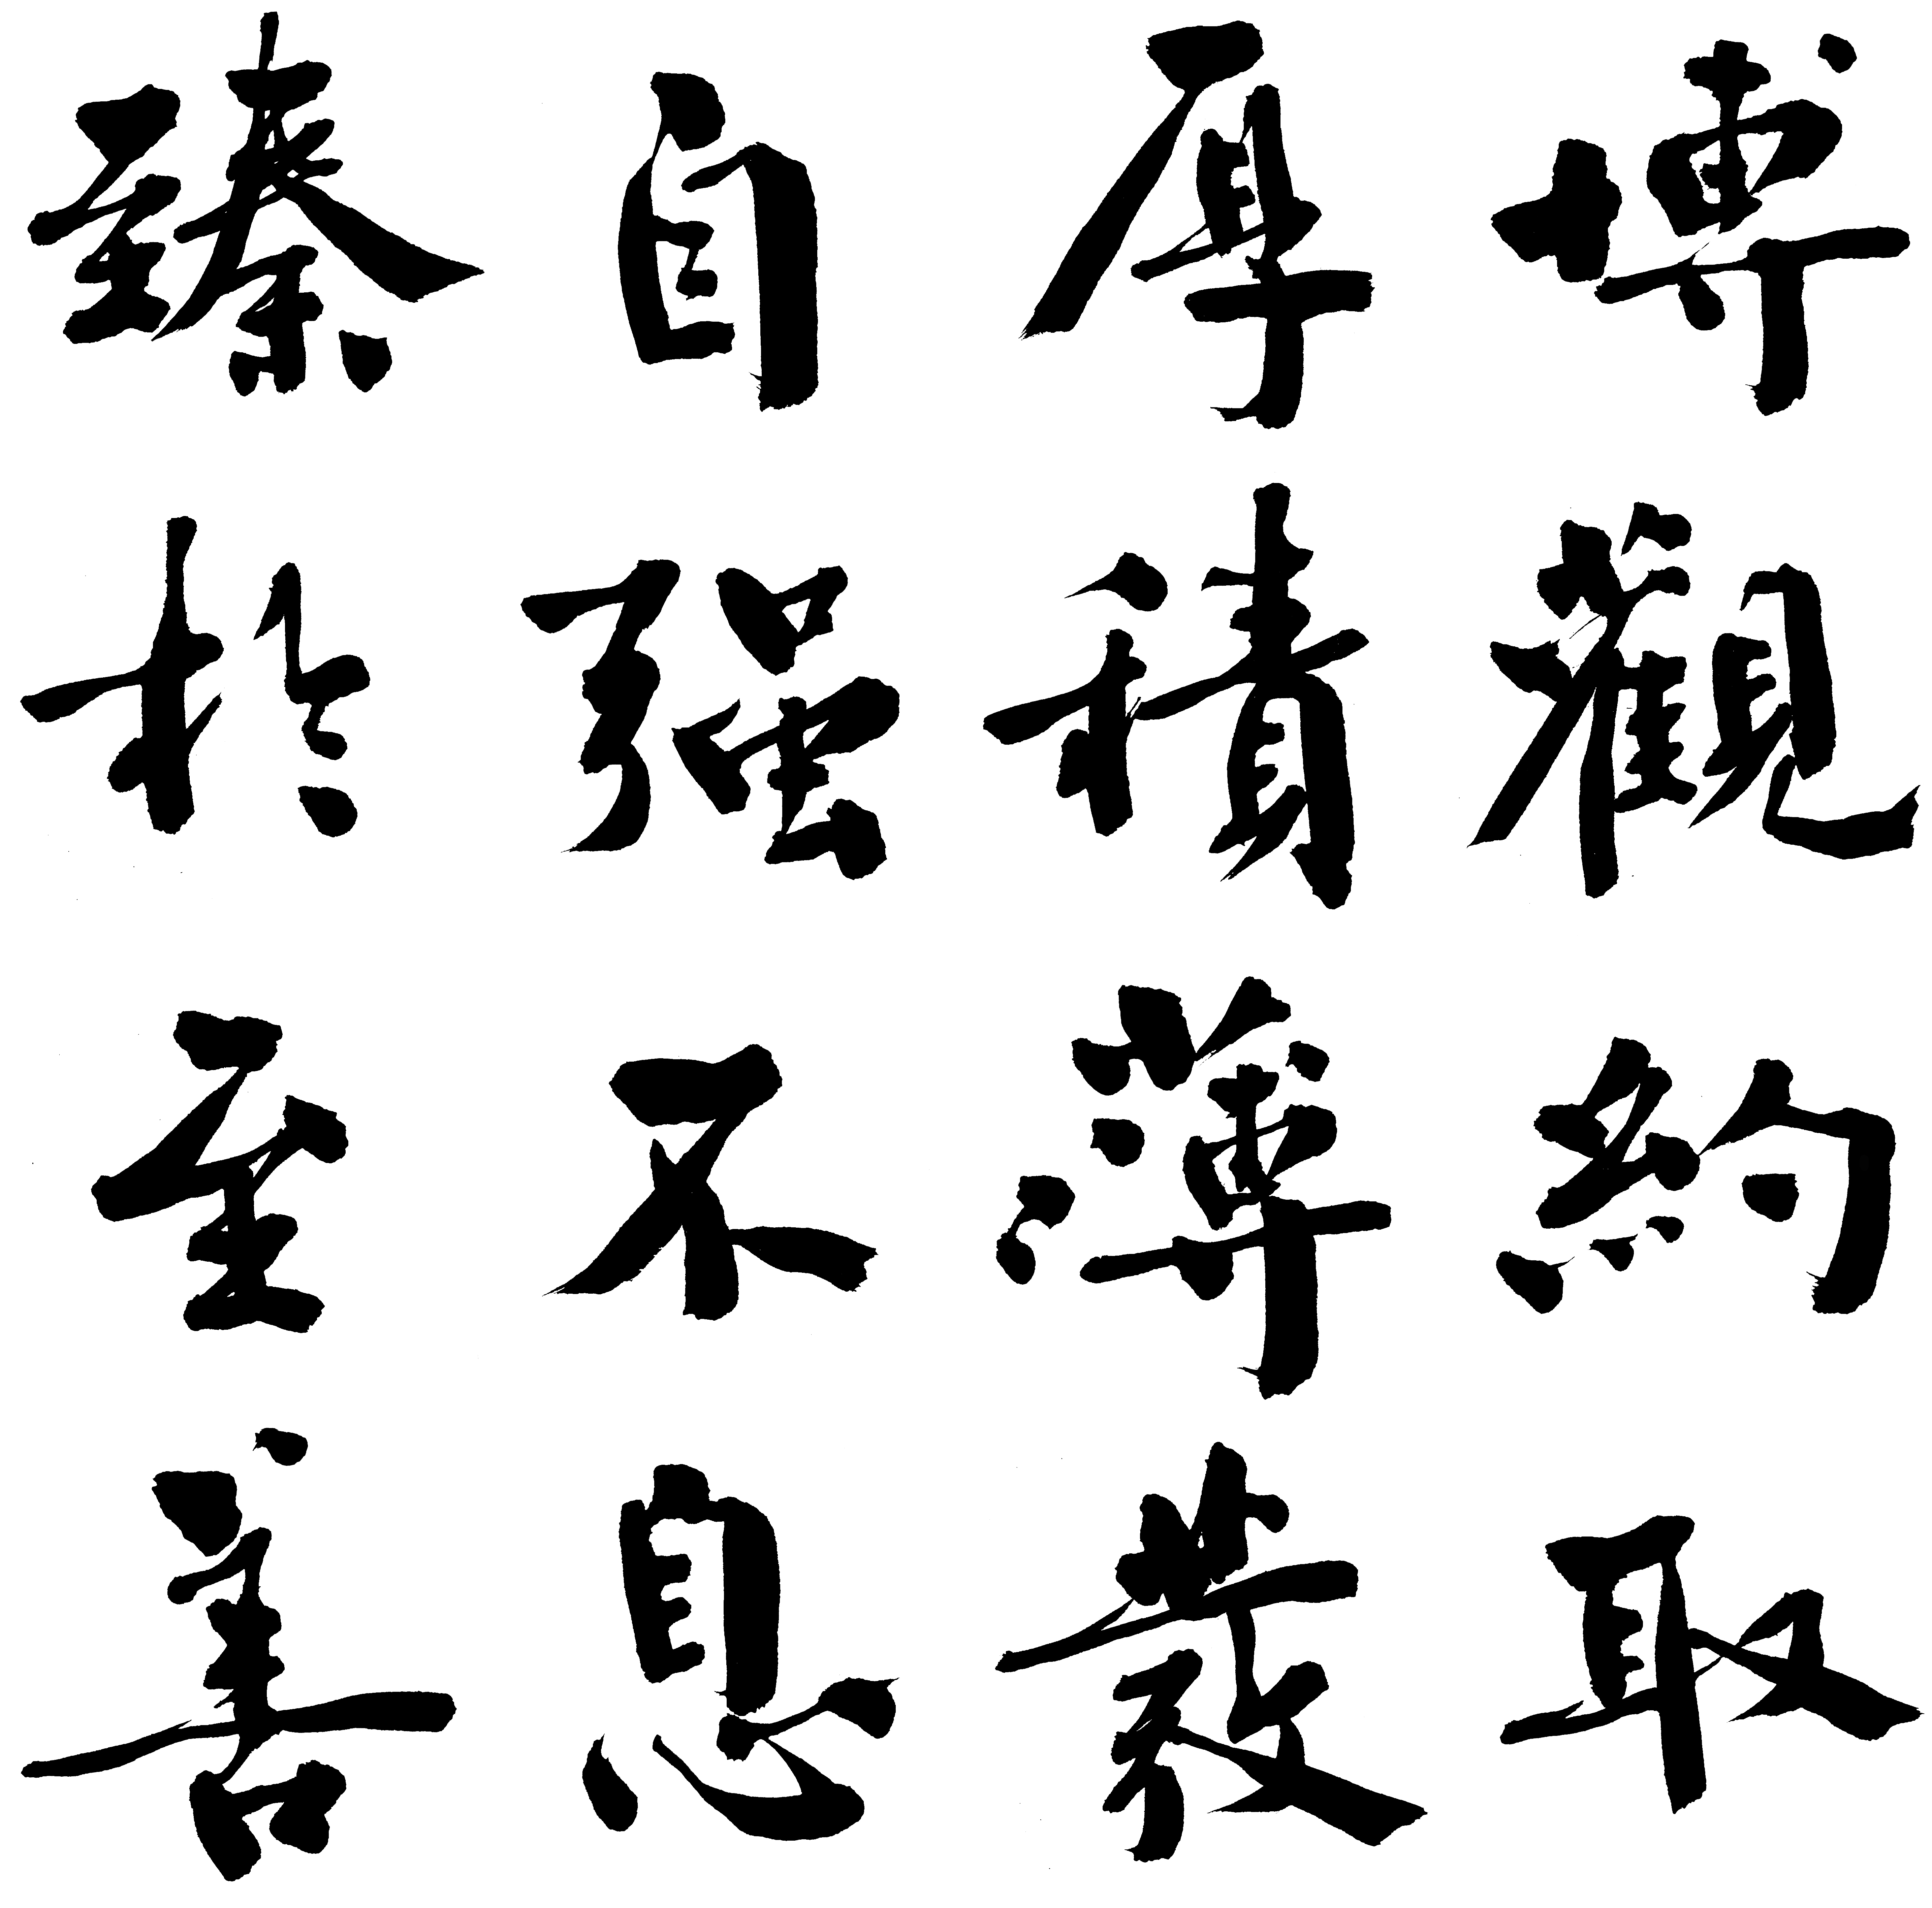 博觀約取
厚積薄發
自強不息
臻於至善